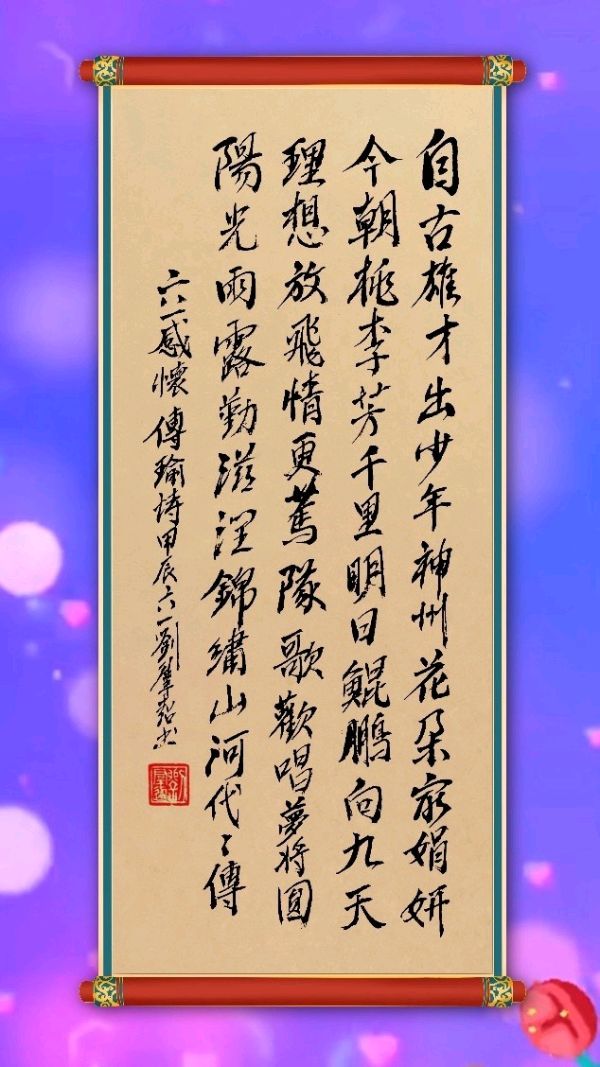 自古雄才出少年神州花朵最娟妍
今朝桃李芳千里明日鯤鵬向九天
理想放飛情更篤隊歌歡唱夢將圓
陽光雨露勤滋潤錦繡山河代々傳
六一感懷傅瑜詩甲辰六一劉肇超書